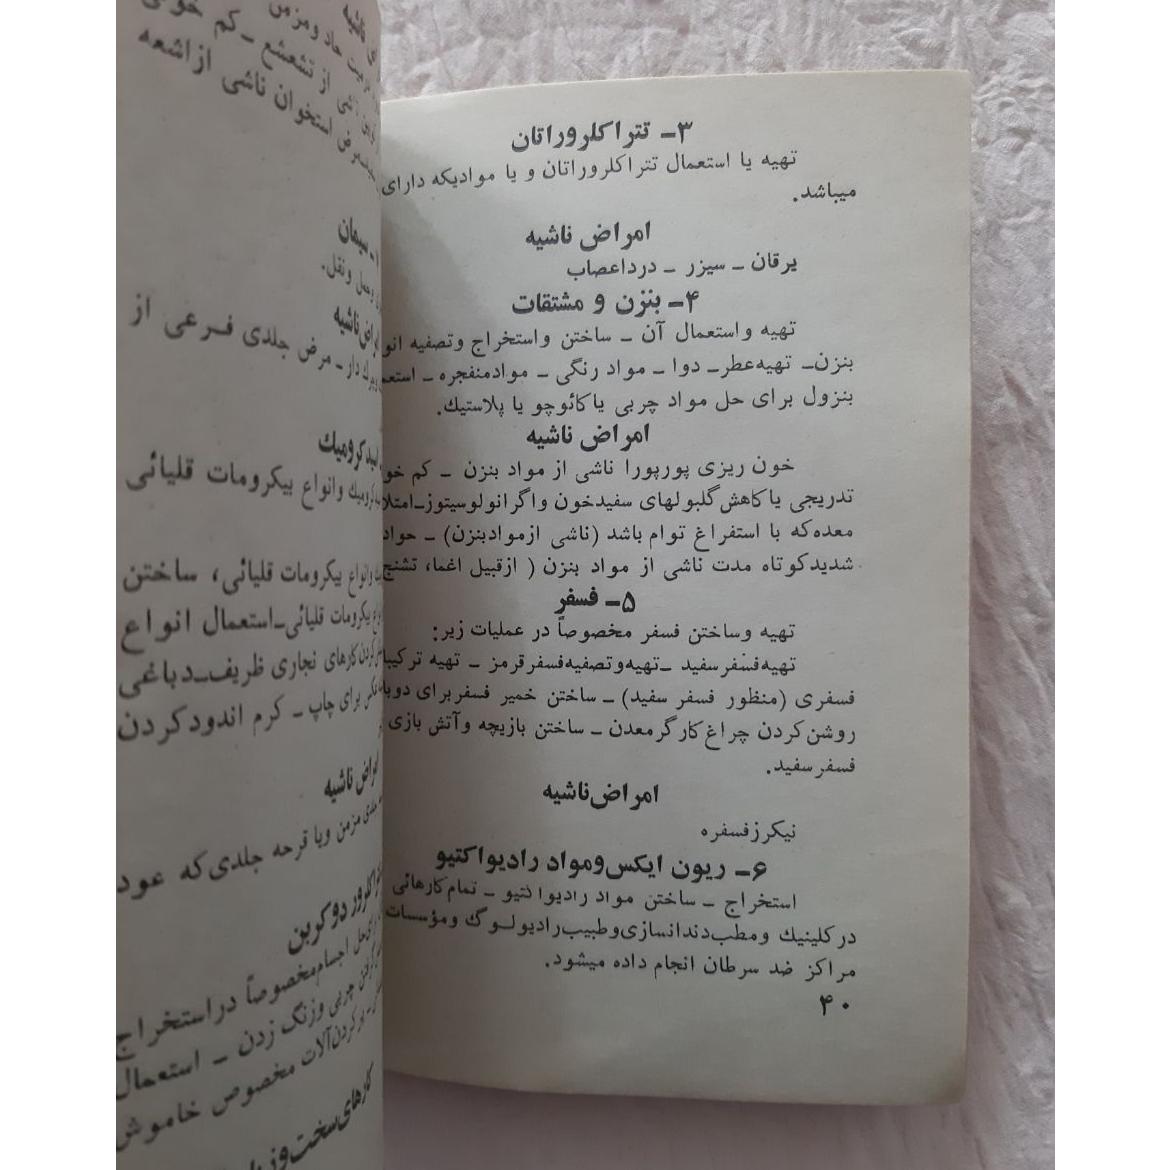 ۳ـ تتراکلروراتان
تهیه یا استعمال تتراکلروراتان و یا موادیکه دارای
میباشد.
امراض ناشیه
یرقان ـ سیزر ـ درداعصاب
۴ـ بنزن و مشتقات
تهیه واستعمال آن ـ ساختن واستخراج وتصفیه انو
بنزن ـ تهیه‌عطر ـ دوا ـ مواد رنگی ـ موادمنفجره ـ استعم
بنزول برای حل مواد چربی یاکائوچو یا پلاستیك.
امراض ناشیه
خون ریزی پورپورا ناشی از مواد بنزن ـ کم خو
تدریجی یاکاهش گلبولهای سفیدخون واگرانولوسیتوز ـ امتلا
معده‌که با استفراغ توام باشد (ناشی ازموادبنزن) ـ حواد
شدیدکوتاه مدت ناشی از مواد بنزن ( ازقبیل اغما، تشنج
۵ـ فسفر
تهیه وساختن فسفر مخصوصاً در عملیات زیر:
تهیه‌فسفرسفید ـ تهیه‌وتصفیه‌فسفرقرمز ـ تهیه ترکیبا
فسفری (منظور فسفر سفید) ـ ساختن خمیر فسفربرای دوبا
روشن‌کردن چراغ‌کارگرمعدن ـ ساختن بازیچه وآتش بازی
فسفرسفید.
امراض ناشیه
نیکرزفسفره
۶ـ ریون ایکس‌ومواد رادیواکتیو
استخراج ـ ساختن مواد رادیواکتیو ـ تمام‌کارهائی
درکلینیك ومطب‌دندانسازی‌وطبیب‌رادیولوگ ومؤسسات
مراکز ضد سرطان انجام داده میشود.
۴۰
ناشیه
حاد ومزمن
ناشی از تشعشع ـ کم
مرض استخوان ناشی ازاشعه
سیمان
وحمل ونقل.
ناشیه
دار ـ مرض جلدی فرعی از
کرومیك
وانواع بیکرومات قلیائی
وانواع بیکرومات قلیائی، ساختن
بیکرومات قلیائی ـ استعمال انواع
کردن‌کارهای نجاری ظریف ـ دباغی
برای چاپ ـ کرم اندودکردن
امراض ناشیه
جلدی مزمن ویا قرحه جلدی‌که عود
دوکربن
حل اجسام‌مخصوصاً دراستخراج
چربی وزنگ زدن ـ استعمال
آلات مخصوص خاموش
کارهای‌سخت